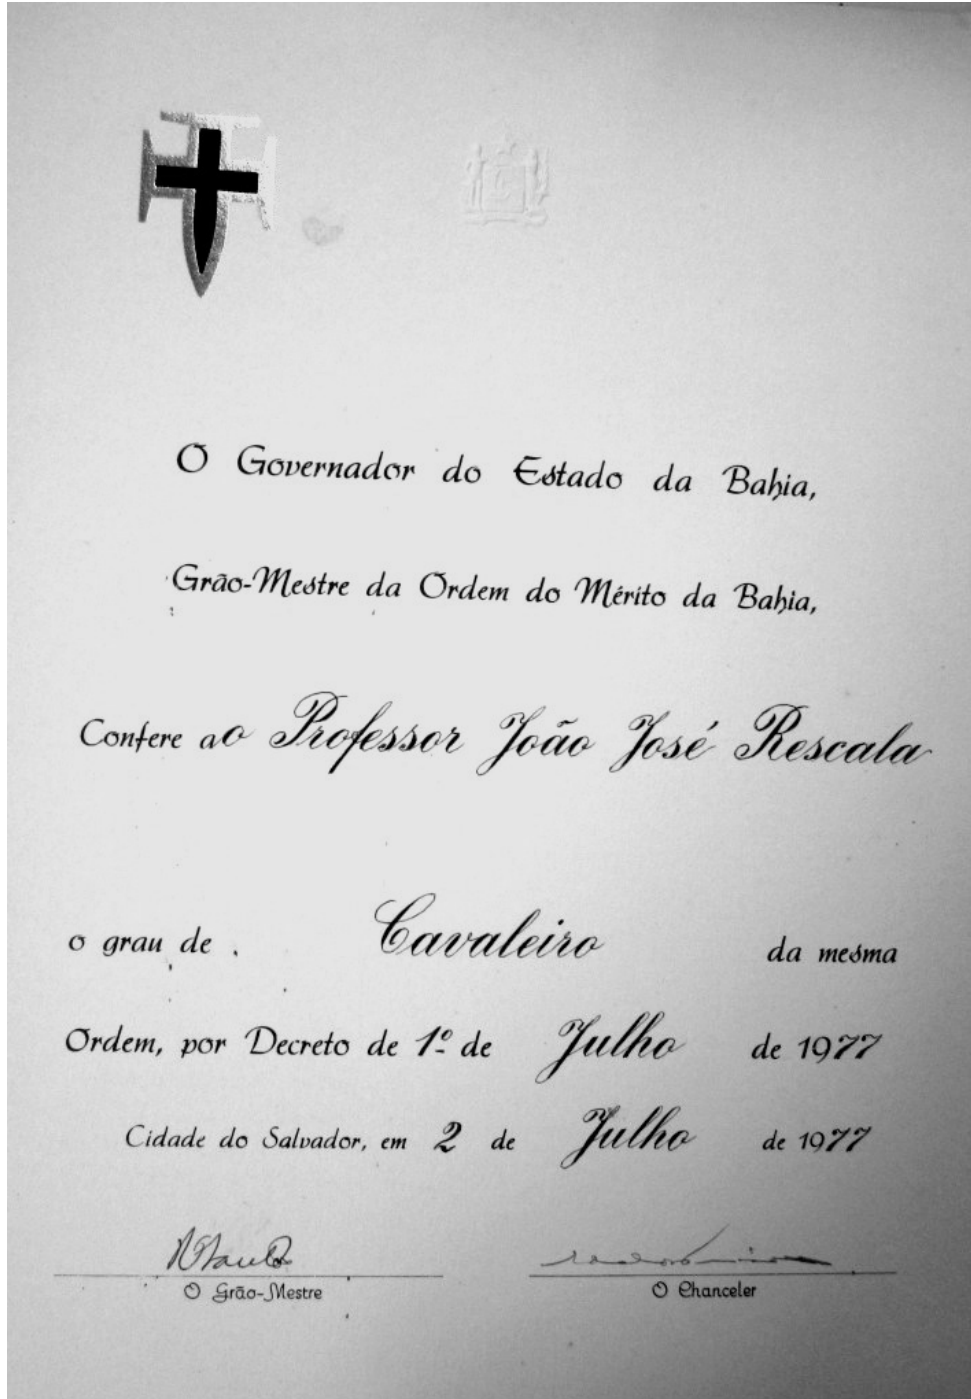 O Governador do Estado da Bahia,
Grão-Mestre da Ordem do Mérito da Bahia,
Confere ao Professor João José Rescala
o grau de . Cavaleiro da mesma
Ordem, por Decreto de 1º de Julho de 1977
Cidade do Salvador, em 2 de Julho de 1977
O Grão-Mestre O Chanceler